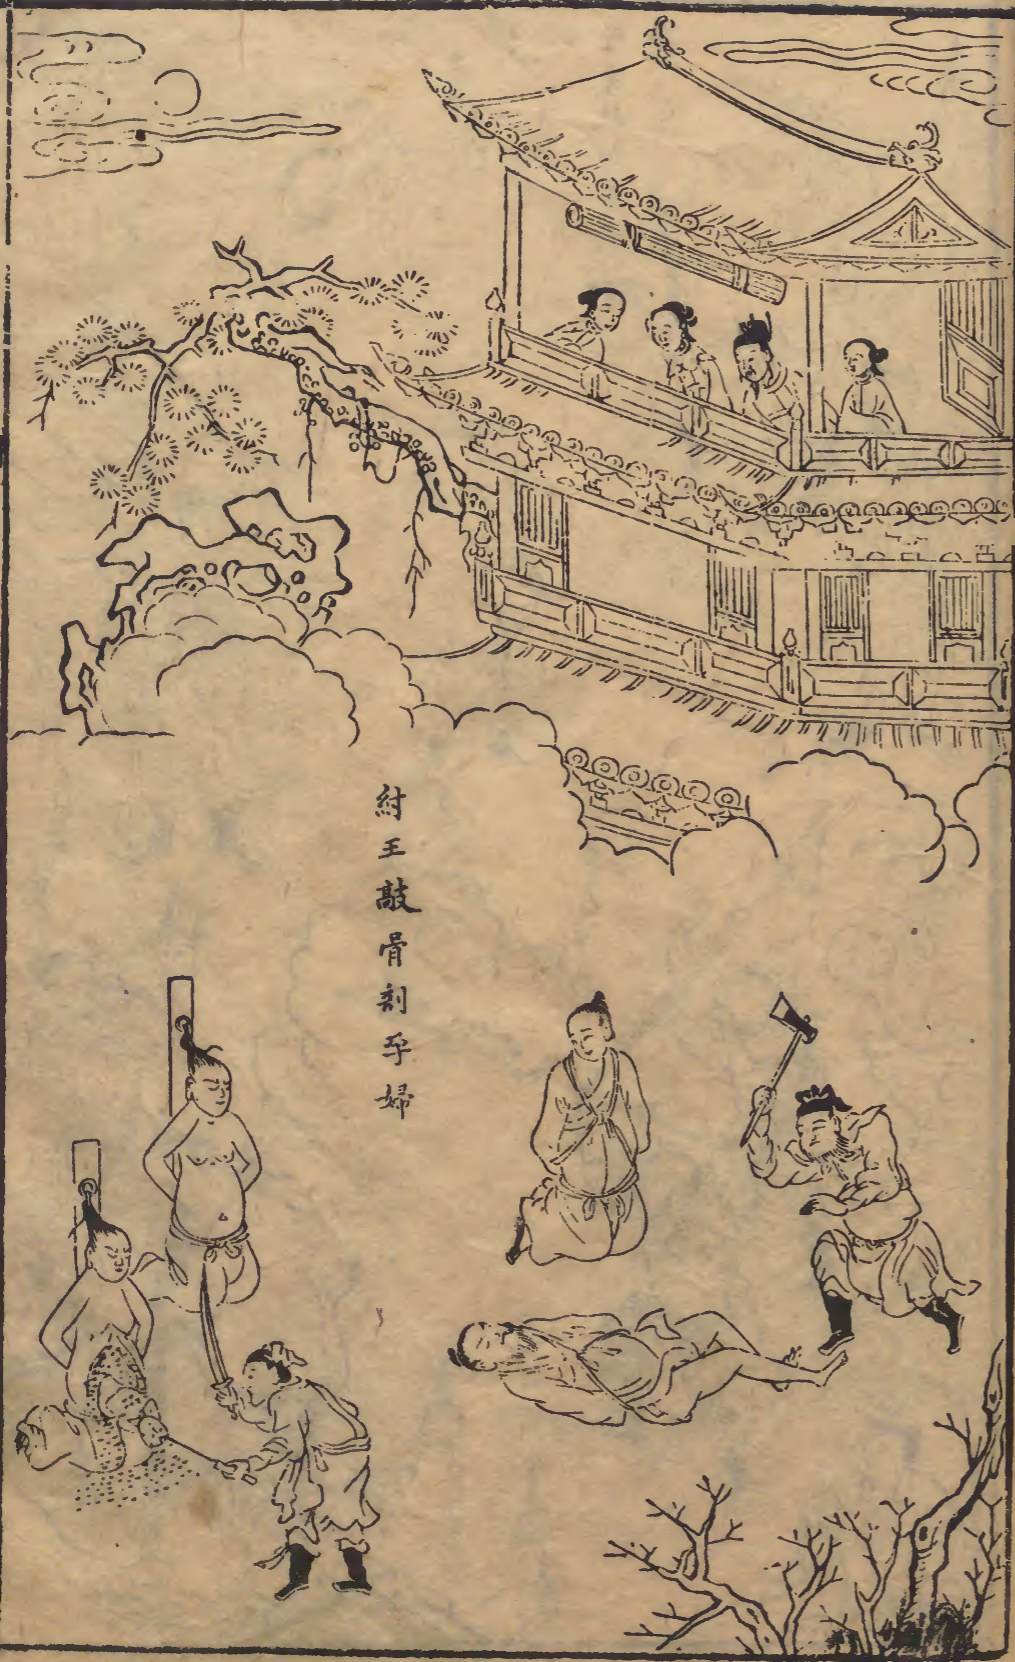 紂王敲骨剖孕婦